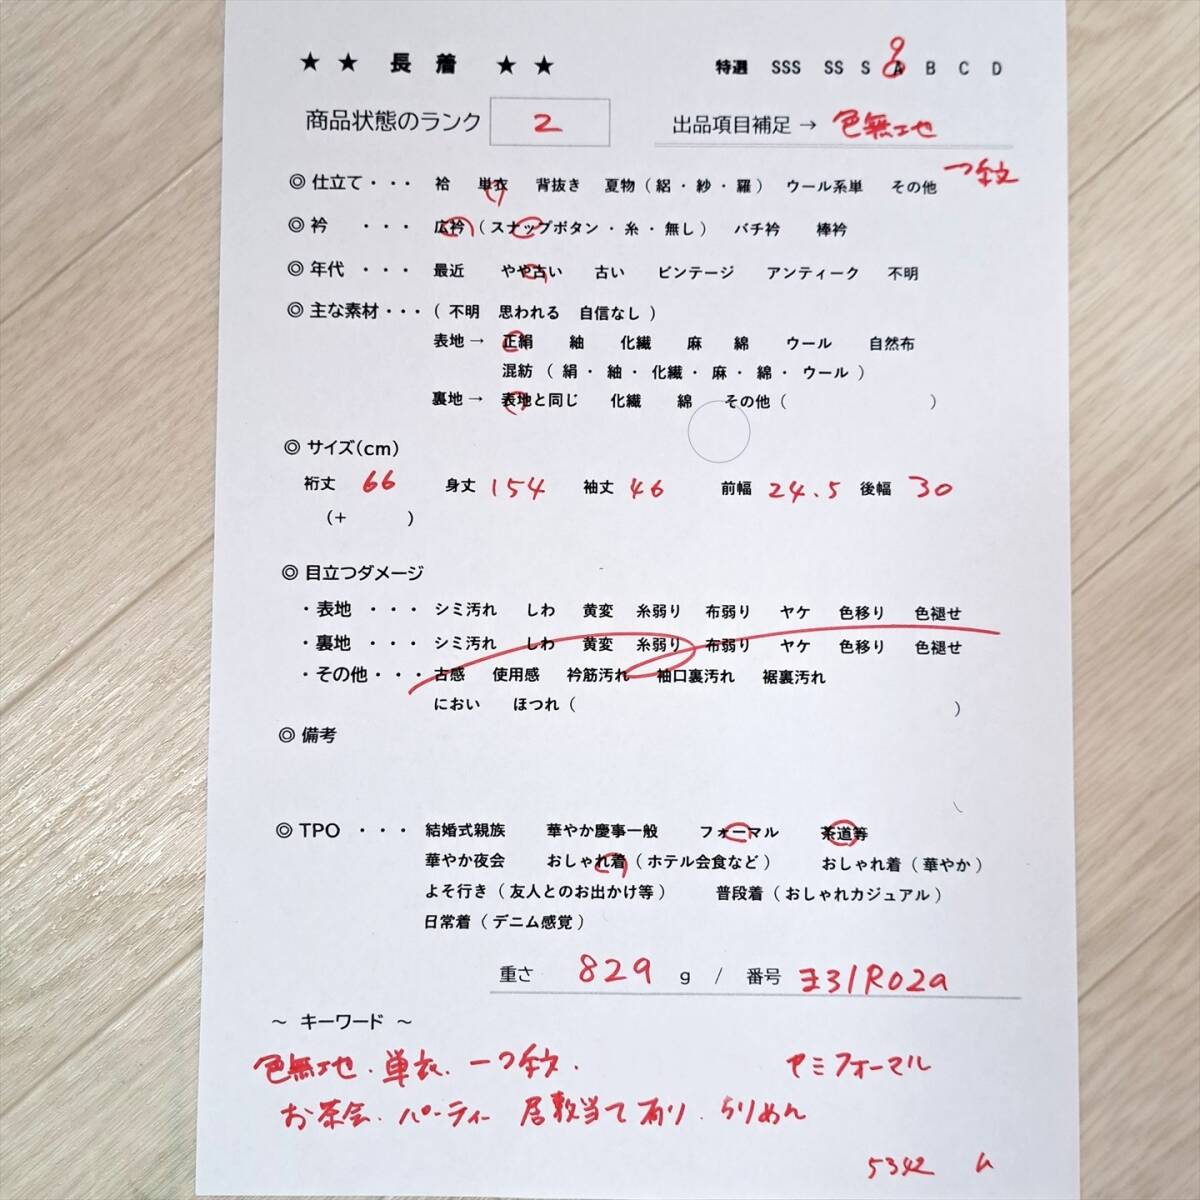 ★ ★ 長 着 ★ ★ 特選 SSS SS S A B C D
商品状態のランク 2 出品項目補足 → 色無地
一つ紋
◎ 仕立て ・・・ 袷 単衣 背抜き 夏物（ 絽 ・ 紗 ・ 羅 ） ウール系単 その他
◎ 衿 ・・・ 広衿（ スナップボタン ・ 糸 ・ 無し ） バチ衿 棒衿
◎ 年代 ・・・ 最近 やや古い 古い ビンテージ アンティーク 不明
◎ 主な素材・・・（ 不明 思われる 自信なし ）
表地 → 正絹 紬 化繊 麻 綿 ウール 自然布
混紡（ 絹 ・ 紬 ・ 化繊 ・ 麻 ・ 綿 ・ ウール ）
裏地 → 表地と同じ 化繊 綿 その他（ ）
◎ サイズ(cm)
裄丈 66 身丈 154 袖丈 46 前幅 24.5 後幅 30
(+ )
◎ 目立つダメージ
・表地 ・・・ シミ汚れ しわ 黄変 糸弱り 布弱り ヤケ 色移り 色褪せ
・裏地 ・・・ シミ汚れ しわ 黄変 糸弱り 布弱り ヤケ 色移り 色褪せ
・その他・・・ 古感 使用感 衿筋汚れ 袖口裏汚れ 裾裏汚れ
におい ほつれ（ ）
◎ 備考
◎ TPO ・・・ 結婚式親族 華やか慶事一般 フォーマル 茶道等
華やか夜会 おしゃれ着（ ホテル会食など ） おしゃれ着（ 華やか ）
よそ行き（ 友人とのお出かけ等 ） 普段着（ おしゃれカジュアル ）
日常着（ デニム感覚 ）
重さ 829 g / 番号 ま31R02a
～ キーワード ～
色無地.単衣.一つ紋. セミフォーマル
お茶会.パーティー 居敷当て有り.ちりめん
5342